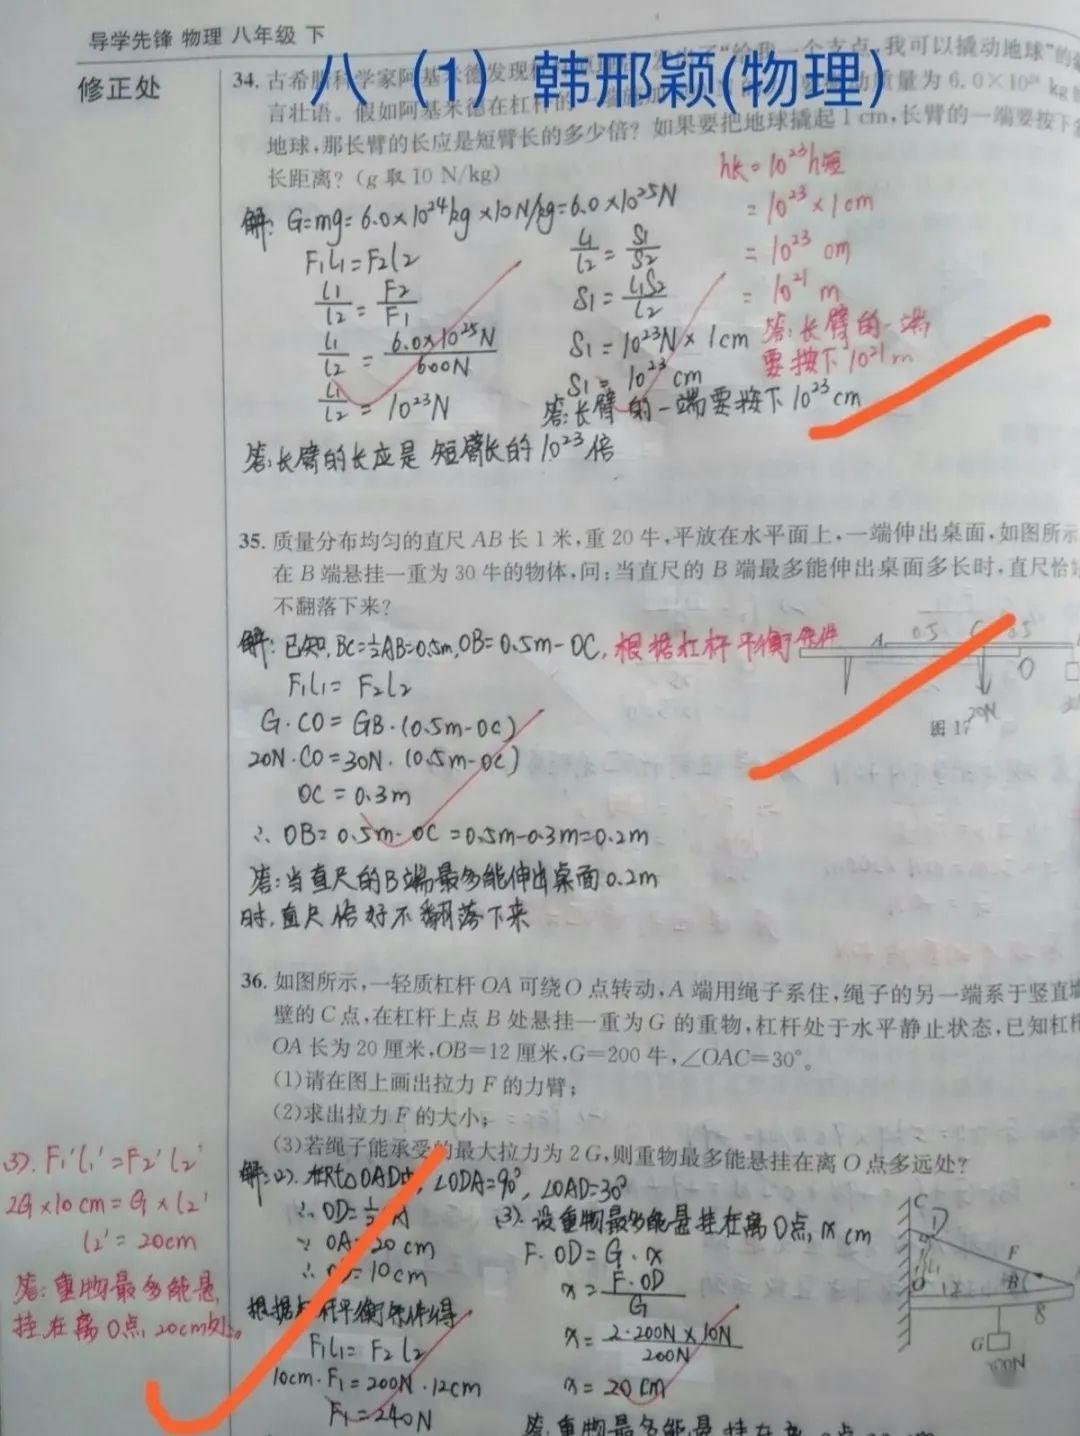 导学先锋 物理 八年级 下
八 (1) 韩邢颖(物理)
修正处
34. 古希腊科学家阿基米德发现 "给我一个支点,我可以撬动地球"的
言壮语。假如阿基米德在杠杆的一端施加 质量为 6.0×10²⁴ kg
地球,那长臂的长应是短臂长的多少倍?如果要把地球撬起 1 cm,长臂的一端要按下
长距离?(g 取 10 N/kg)
解: G=mg=6.0×10²⁴kg×10N/kg=6.0×10²⁵N
F₁l₁=F₂l₂
l₁/l₂=F₂/F₁
l₁/l₂=6.0×10²⁵N/600N
l₁/l₂=10²³N
答:长臂的长应是短臂长的10²³倍
l₁/l₂=S₁/S₂
S₁=l₁S₂/l₂
S₁=10²³N×1cm
S₁=10²³cm
答:长臂的一端要按下10²³cm
h长=10²³h短
=10²³×1cm
=10²³cm
=10²¹m
答:长臂的一端
要按下10²¹m
35. 质量分布均匀的直尺 AB 长 1 米,重 20 牛,平放在水平面上,一端伸出桌面,如图所示
在 B 端悬挂一重为 30 牛的物体,问:当直尺的 B 端最多能伸出桌面多长时,直尺恰好
不翻落下来?
解:已知,BC=½AB=0.5m,OB=0.5m-OC,根据杠杆平衡条件
F₁l₁=F₂l₂
G·CO=GB·(0.5m-OC)
20N·CO=30N·(0.5m-OC)
OC=0.3m
∴OB=0.5m-OC=0.5m-0.3m=0.2m
答:当直尺的B端最多能伸出桌面0.2m
时,直尺恰好不翻落下来
A 0.5 C 0.5
O
20N
图 17
36. 如图所示,一轻质杠杆 OA 可绕 O 点转动,A 端用绳子系住,绳子的另一端系于竖直墙
壁的 C 点,在杠杆上点 B 处悬挂一重为 G 的重物,杠杆处于水平静止状态,已知杠杆
OA 长为 20 厘米,OB=12 厘米,G=200 牛,∠OAC=30°。
(1)请在图上画出拉力 F 的力臂;
(2)求出拉力 F 的大小;
(3)若绳子能承受的最大拉力为 2G,则重物最多能悬挂在离 O 点多远处?
解:(2).在Rt△OAD中,∠ODA=90°,∠OAD=30°
∴OD=½OA
∵OA=20cm
∴OD=10cm
根据杠杆平衡条件得
F₁l₁=F₂l₂
10cm·F₁=200N·12cm
F₁=240N
(3).设重物最多能悬挂在离O点,x cm
F·OD=G·x
x=F·OD/G
x=2·200N×10N/200N
x=20cm
答:重物最多能悬挂在离O点
(3).F₁'l₁'=F₂'l₂'
2G×10cm=G×l₂'
l₂'=20cm
答:重物最多能悬
挂在离O点20cm处。
C
D
F
O 12 B
8
G